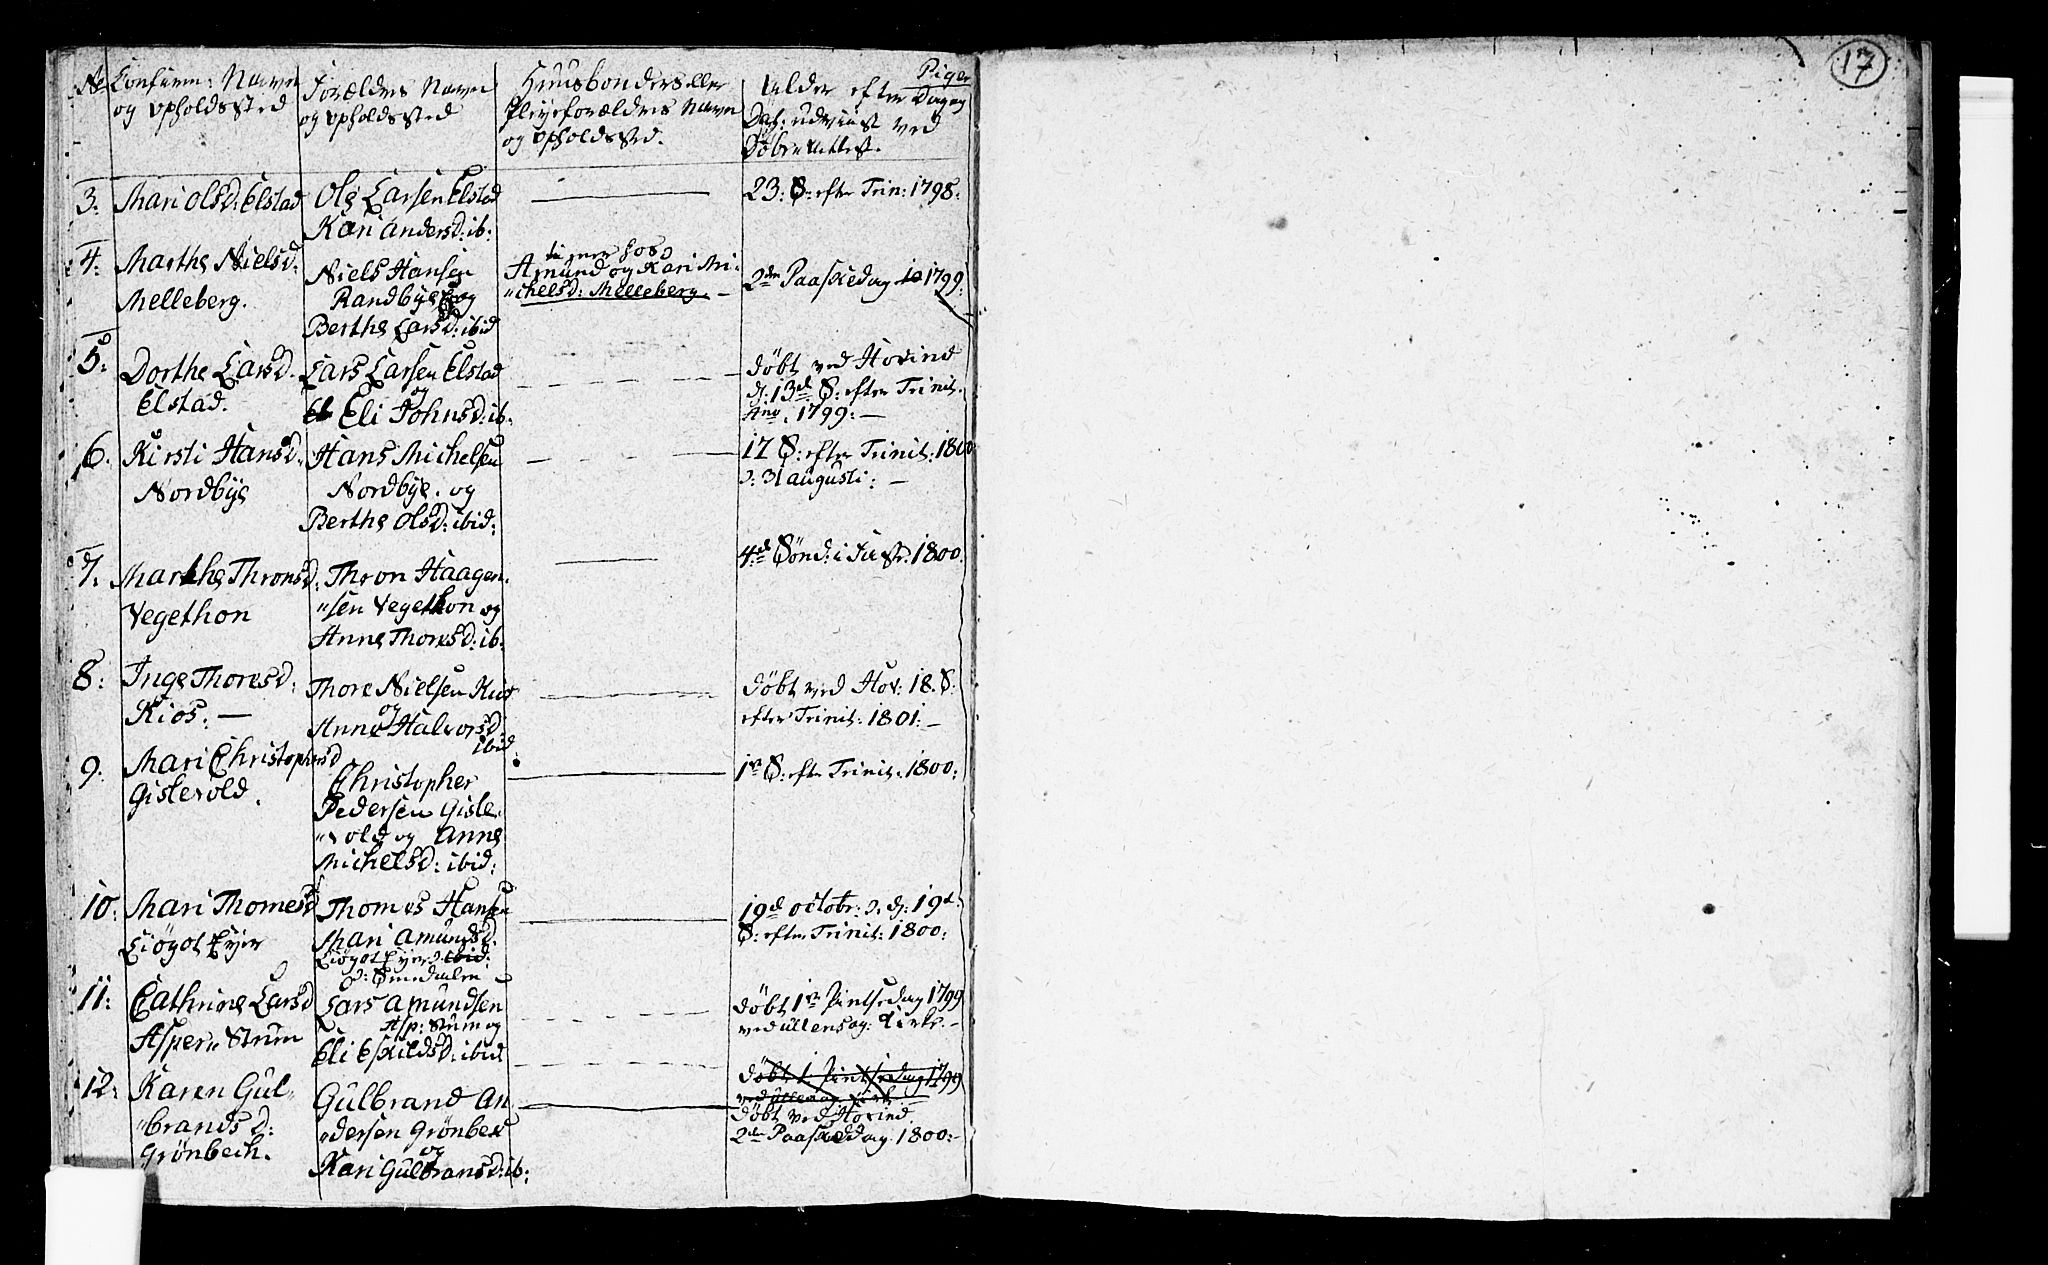 Piger
17
No Confirm: Navn
og opholdssted
Forældres Navn
og opholdssted
Huusbonders eller
Pleyeforældres Navn
og opholdssted.
Alder efter Dag og
Dat: udviist ved
Døbe Attest.
3. Mari Olsd: Elstad
Ole Larsen Elstad
Kari Andersd: ib:
23. S: efter Trin: 1798.
4. Marthe Nielsd:
Melleberg.
Niels Hansen
Randbye og
Berthe Larsd: ibid
tiener hos
Amund og Kari Mi-
"chelsd: Melleberg. -
2den Paaskedag 1799.
5. Dorthe Larsd.
Elstad.
Lars Larsen Elstad
og
Eli Johnsd: ib:
døbt ved Hovind
d: 13de S: efter Trinit.
Ano. 1799. -
6. Kirsti Hansd.
Nordbye
Hans Michelsen
Nordbye. og
Berthe Olsd: ibid:
17 S: efter Trinit: 1800
d: 31 augusti: -
7. Marthe Thronsd.
Vegethon
Thron Haagen-
"sen Vegethon og
Anne Thoresd: ib:
4de Sønd: i Fast: 1800.
8. Inge Thoresd:
Kios. -
Thore Nielsen Kios
og
Anne Halvorsd:
ibid.
døbt ved Hov: 18. S:
efter Trinit: 1801. -
9. Mari Christophersd
Gislevold.
Christopher
Pedersen Gisle-
"vold og Anne
Michelsd: ibid:
1ste S: efter Trinit. 1800:
10. Mari Thomesd
Liøgot Eyer
Thomes Hansen
Mari Amundsd.
Liøgot Eyer ibid:
19de octobr: d: 19de
S: efter Trinit: 1800:
11. Cathrine Larsd
Asper" Strøm
Lars Amundsen
Asp: Strøm og
Eli Eskildsd: ibid
døbt 1ste Pintsedag 1799
ved Ullensag: Kirke. -
12. Karen Gul-
"brands D:
Grønbech.
Gulbrand An-
"dersen Grønbech
og
Kari Gulbransd: ib:
døbt 1. Pintsedag 1799
ved Ullensag Kirke
døbt ved Hovind
2den Paaskedag. 1800:-